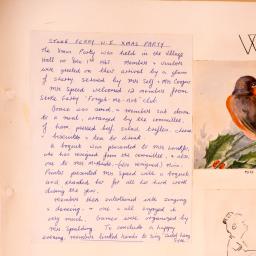 STOKE FERRY W.I. XMAS PARTY
The Xmas Party was held in the Village
Hall on Dec 1st 1967. Members & visitors
were greeted on their arrival by a glass
of sherry served by Mrs Self & Mrs Cooper
Mrs Speed welcomed 12 members from
Stoke Ferry Forget-me-not club.
Grace was said & members sat down
to a meal, arranged by the committee,
of ham, pressed beef, salad, trifles, cheese
& biscuits & tea to drink
A bouquet was presented to Mrs
who has resigned from the committee, & also
one to Mrs who has resigned. Mrs
presented Mrs Speed with a bouquet
and thanked her for all her hard work
during the year.
Members then entertained with singing
& dancing & one & all enjoyed it
very much. Games were organised by
Mrs Spalding. To conclude a happy
evening, members linked hands to sing Auld Lang
Syne
W